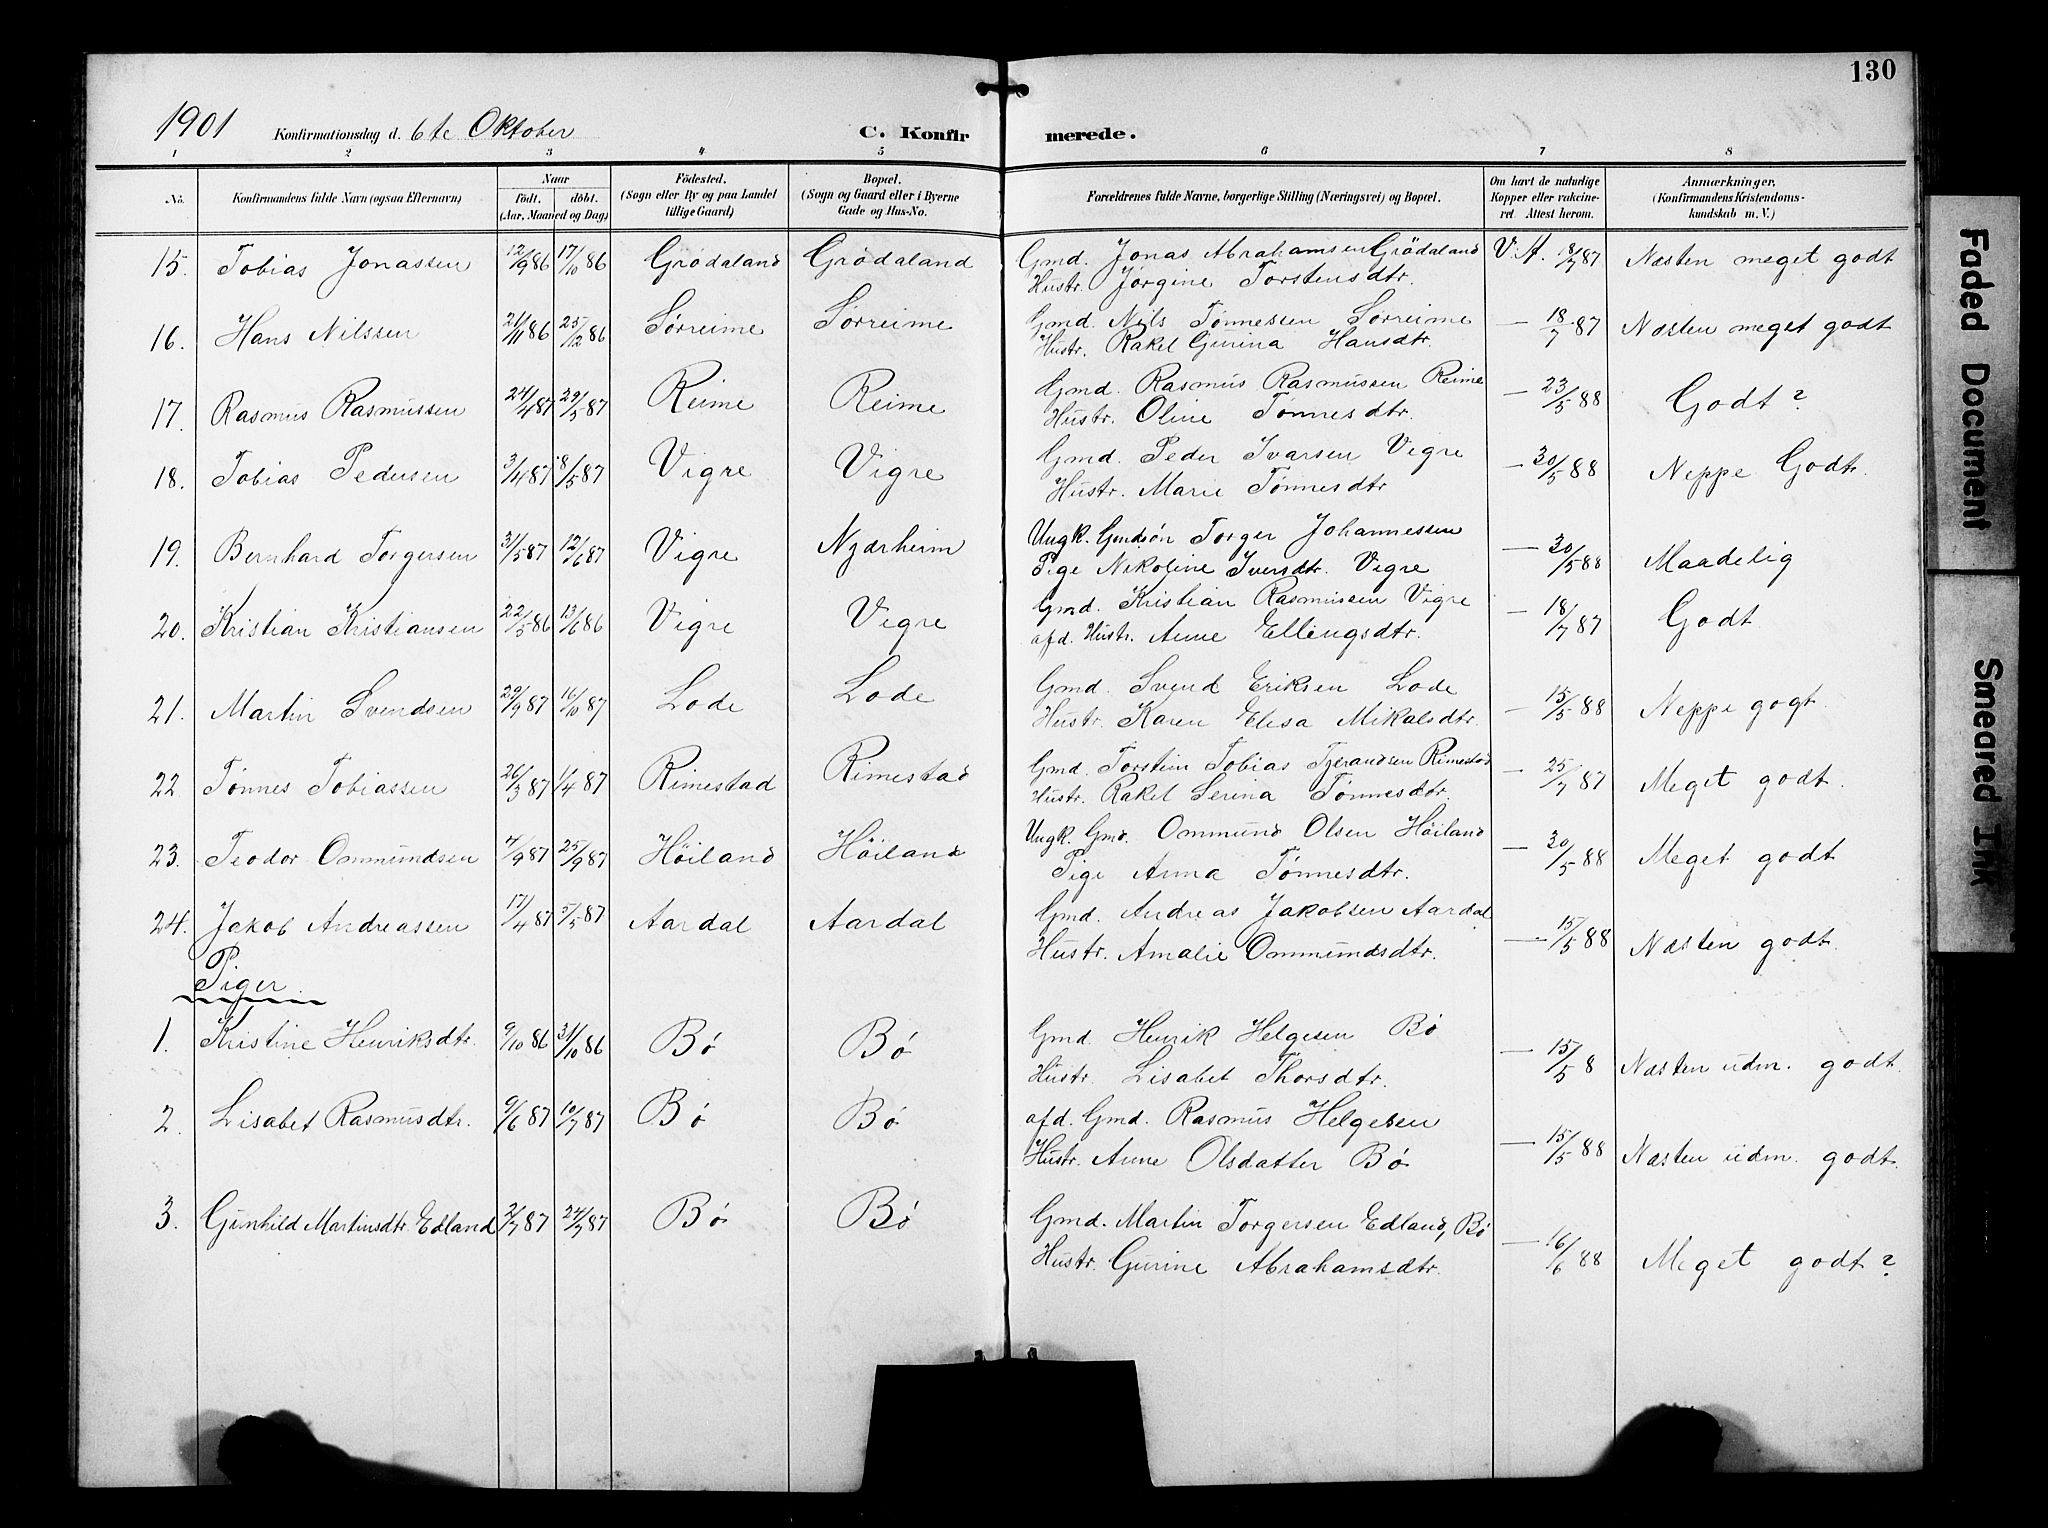 130
1901 Konfirmationsdag d. 6te Oktober C. Konfir merede.
1 2 3 4 5 6 7 8
No. Konfirmandens fulde Navn (ogsaa Efternavn) Naar født. døbt. (Aar, Maaned og Dag) Fødested. (Sogn eller By og paa Landet tillige Gaard) Bopæl. (Sogn og Gaard eller i Byerne Gade og Hus-No. Forældrenes fulde Navne, borgerlige Stilling (Næringsvei) og Bopæl. Om havt de naturlige Kopper eller vakcineret Attest herom. Anmærkninger. (Konfirmandens Kristendomskundskab m. V.)
15. Tobias Jonassen 12/9 86 17/10 86 Grødaland Grødaland Gmd. Jonas Abrahamsen Grödaland V. A. 18/7 87 Næsten meget godt
Hustr. Jørgine Torstensdtr.
16. Hans Nilssen 21/11 86 25/12 86 Sørreime Sørreime Gmd. Nils Tønnessen Sørreime — 18/7 87 Næsten meget godt
Hustr. Rakel Gurina Hansdtr.
17. Rasmus Rasmussen 24/4 87 29/5 87 Reime Reime Gmd. Rasmus Rasmussen Reime — 23/5 88 Godt?
Hustr. Oline Tønnesdtr.
18. Tobias Pedersen 3/4 87 8/5 87 Vigre Vigre Gmd. Peder Ivarsen Vigre — 30/5 88 Neppe Godt.
Hustr. Marie Tønnesdtr
19. Bernhard Torgersen 31/5 87 12/6 87 Vigre Njærheim Ungk. Gmdsøn Torger Johannessen — 30/5 88 Maadelig
Pige Nikoline Iversdtr. Vigre
20. Kristian Kristiansen 22/5 86 13/6 86 Vigre Vigre Gmd. Kristian Rasmussen Vigre — 18/7 87 Godt
afd. Hustr. Anne Ellingsdtr.
21. Martin Svendsen 29/9 87 16/10 87 Lode Lode Gmd. Svend Eriksen Lode — 15/5 88 Neppe gogt.
Hustr. Karen Elisa Mikalsdtr.
22. Tønnes Tobiassen 26/3 87 11/4 87 Rimestad Rimestad Gmd. Torstein Tobias Tjerandsen Rimestad — 25/7 87 Meget godt.
Hustr. Rakel Serina Tønnesdtr.
23. Teodor Ommundsen 7/9 87 25/9 87 Höiland Höiland Ungk. Gmd. Ommund Olsen Höiland — 30/5 88 Meget godt
Pige Anna Tønnesdtr.
24. Jakob Andreassen 17/4 87 5/5 87 Aardal Aardal Gmd. Andreas Jakobsen Aardal — 15/5 88 Næsten godt.
Hustr. Amalie Ommundsdtr.
Piger
1. Kristine Henriksdtr. 9/10 86 31/10 86 Bø Bø Gmd. Henrik Helgesen Bø — 15/5 8 Næsten udm. godt.
Hustr. Lisabet Thorsdtr.
2. Lisabet Rasmusdtr. 9/6 87 10/7 87 Bø Bø afd. Gmd. Rasmus Helgesen — 15/5 88 Næsten udm. godt.
Hustr. Anne Olsdatter Bø
3. Gunhild Martinsdtr. Edland 2/7 87 24/7 87 Bø Bø Gmd. Martin Torgersen Edland, Bø — 16/6 88 Meget godt?
Hustr. Gurine Abrahamsdtr.
Faded Document
Smeared Ink